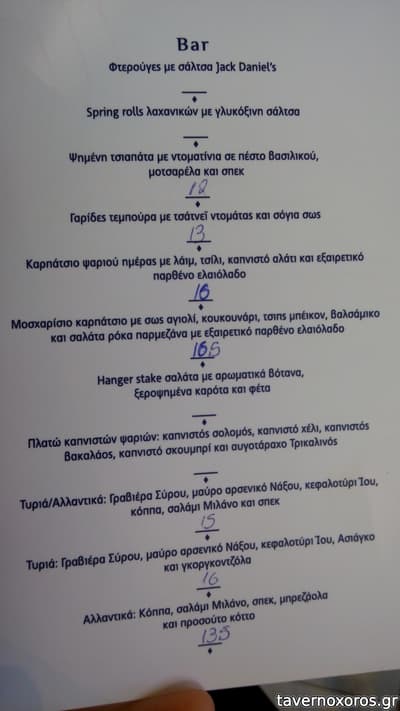 Bar
Φτερούγες με σάλτσα Jack Daniel's
Spring rolls λαχανικών με γλυκόξινη σάλτσα
Ψημένη τσιαπάτα με ντοματίνια σε πέστο βασιλικού,
μοτσαρέλα και σπεκ
12
Γαρίδες τεμπούρα με τσάτνεϊ ντομάτας και σόγια σως
13
Καρπάτσιο ψαριού ημέρας με λάιμ, τσίλι, καπνιστό αλάτι και εξαιρετικό
παρθένο ελαιόλαδο
16
Μοσχαρίσιο καρπάτσιο με σως αγιολί, κουκουνάρι, τσιπς μπέικον, βαλσάμικο
και σαλάτα ρόκα παρμεζάνα με εξαιρετικό παρθένο ελαιόλαδο
16.5
Hanger stake σαλάτα με αρωματικά βότανα,
ξεροψημένα καρότα και φέτα
Πλατώ καπνιστών ψαριών: καπνιστός σολομός, καπνιστό χέλι, καπνιστός
βακαλάος, καπνιστό σκουμπρί και αυγοτάραχο Τρικαλινός
Τυριά/Αλλαντικά: Γραβιέρα Σύρου, μαύρο αρσενικό Νάξου, κεφαλοτύρι Ίου,
κόππα, σαλάμι Μιλάνο και σπεκ
15
Τυριά: Γραβιέρα Σύρου, μαύρο αρσενικό Νάξου, κεφαλοτύρι Ίου, Ασιάγκο
και γκοργκοντζόλα
16
Αλλαντικά: Κόππα, σαλάμι Μιλάνο, σπεκ, μπρεζάολα
και προσούτο κόττο
13.5
tavernoxoros.gr